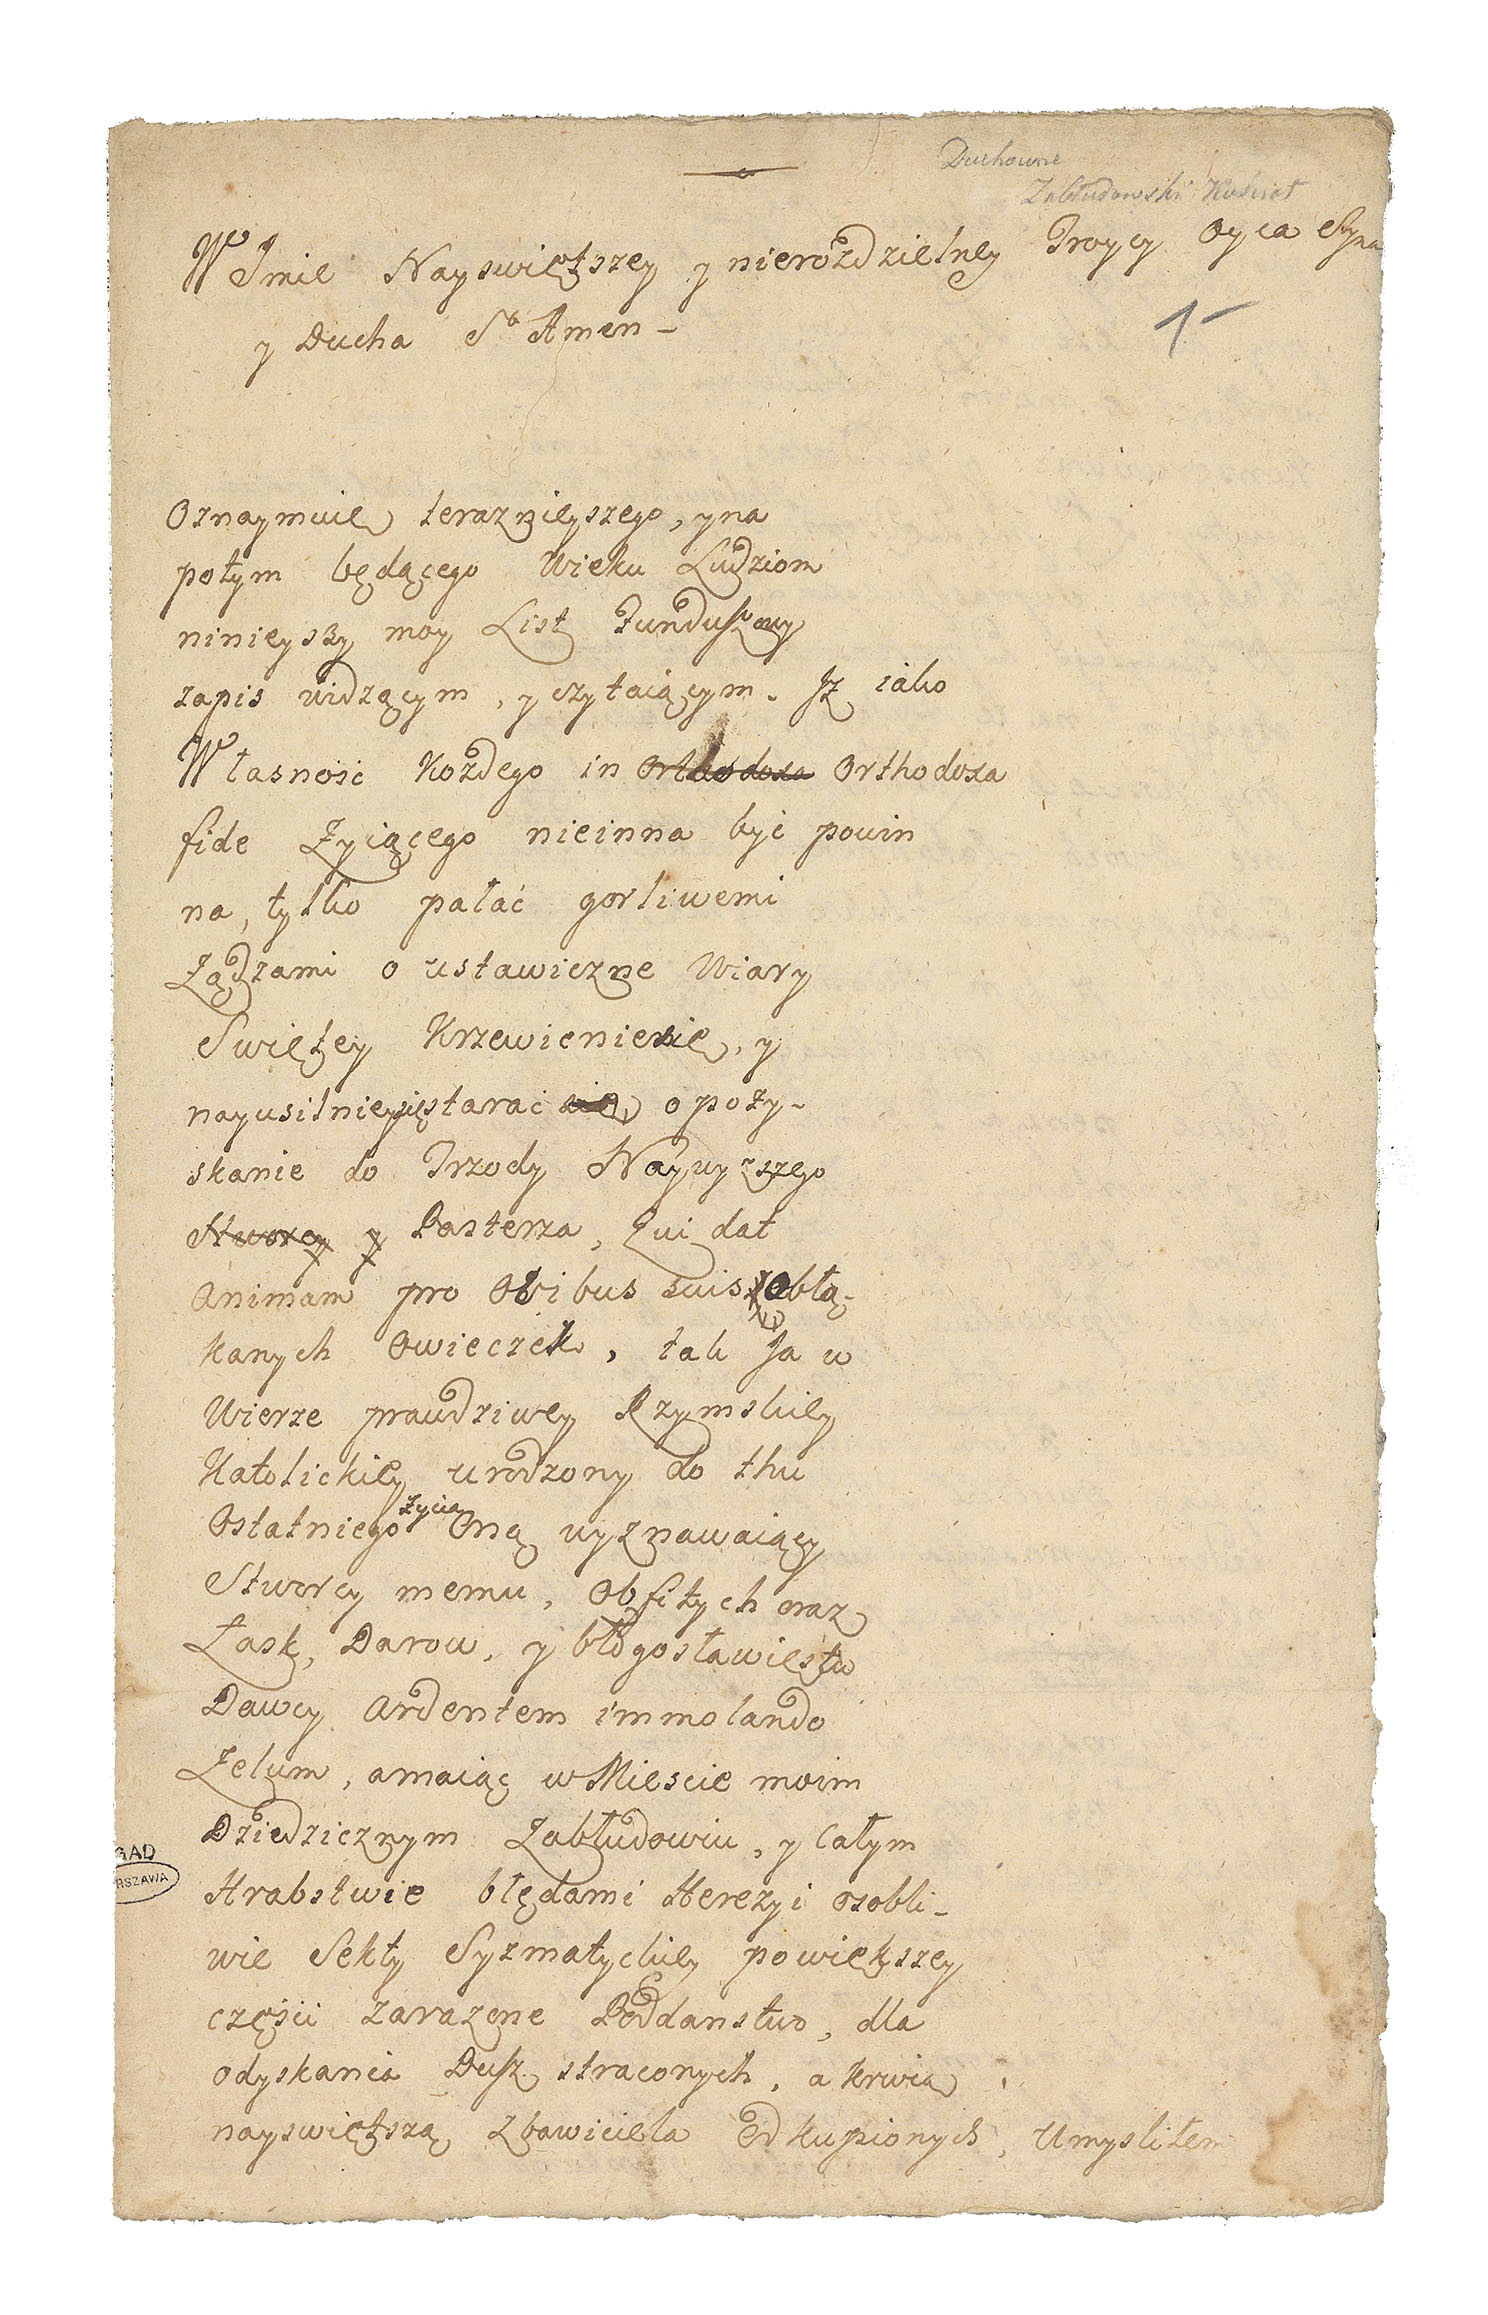 Duchowne
Zabłudowski Kościoł
W Jmie Nayswiętszey y nierozdzielney Troycy Oyca Syna
y Ducha S° Amen -
1-
Oznaymuię teraznieyszego, y na
potym będącego Wieku Ludziom
ninieyszy moy List Funduszowy
zapis widzącym, y czytaiącym. Jż iako
Własność Kożdego in Orthodoxa Orthodoxa
fide Zyiącego nieinna być powin
na, tylko pałać gorliwemi
Ządzami o ustawiczne Wiary
Swiętey Krzewienie się, y
nayusilniey się starać się o pozy-
skanie do Trzody Naywyższego
Stworcy y Pasterza, Qui dat
Animam pro Ovibus suis obłą-
kanych Owieczek, tak Ja w
Wierze prawdziwey Rzymskiey
Katolickiey urodzony do thu
Ostatniego życia Oną wyznawaiący
Stworcy memu, Obfitych oraz
Łask, Darow, y błogosławięstw
Dawcy Ardentem immolando
Zelum, a maiąc w Miescie moim
Dziedzicznym Zabłudowiu, y Całym
Hrabstwie błędami Herezyi osobli-
wie Sekty Syzmatyckiey powiększey
części zarazone Poddanstwo, dla
odyskania Dusz straconych, a Krwią
nayswiętszą Zbawiciela Odkupionych, Umysliłem
GAD
RSZAWA